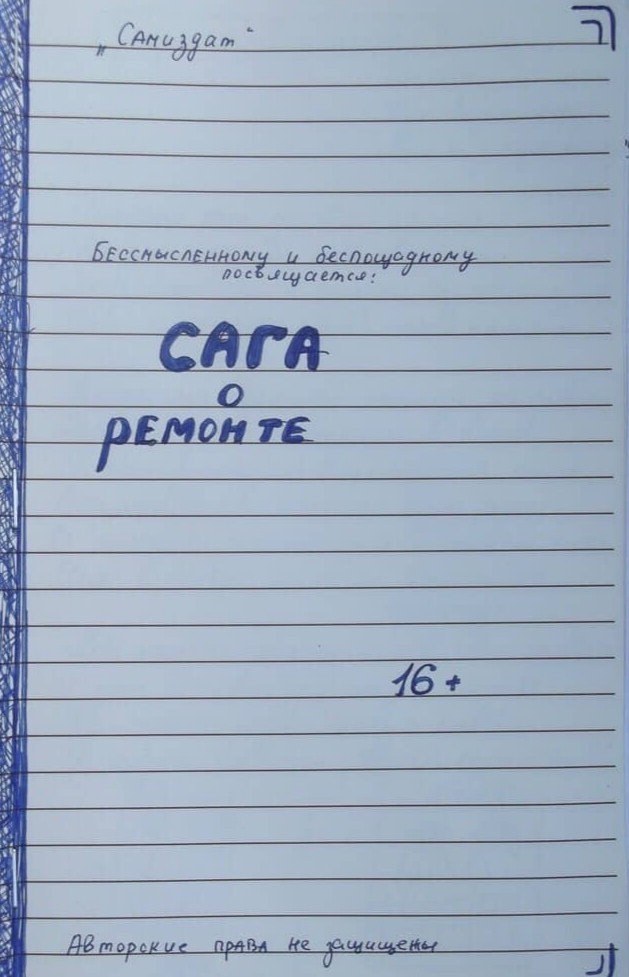 „Самиздат“
Бессмысленному и беспощадному
посвящается:
САГА
о
РЕМОНТЕ
16+
Авторские права не защищены